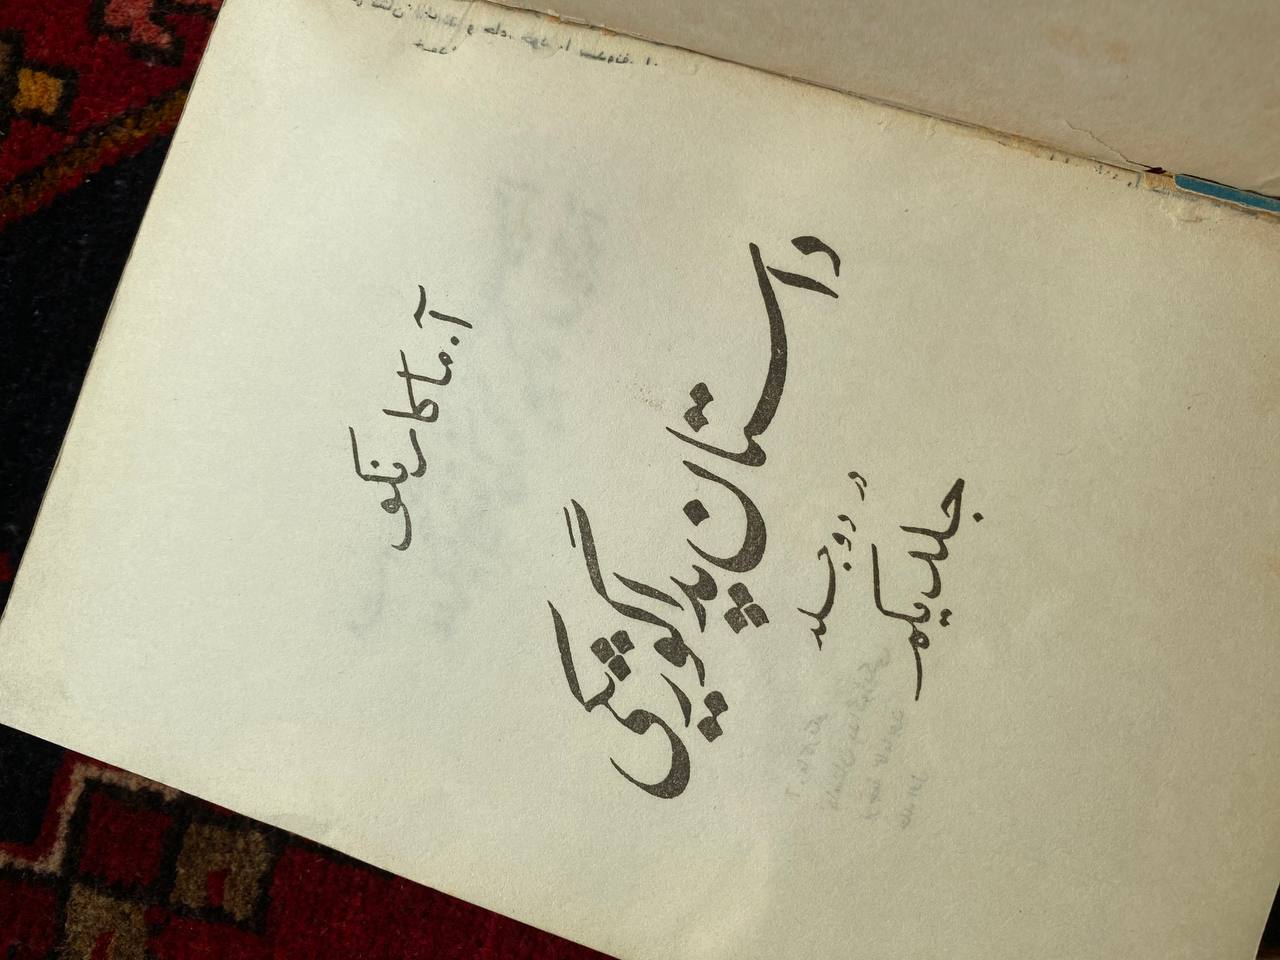 آ. ماکارنکو
داستان پداگوژیکی
در دو جلد
جلد یکم